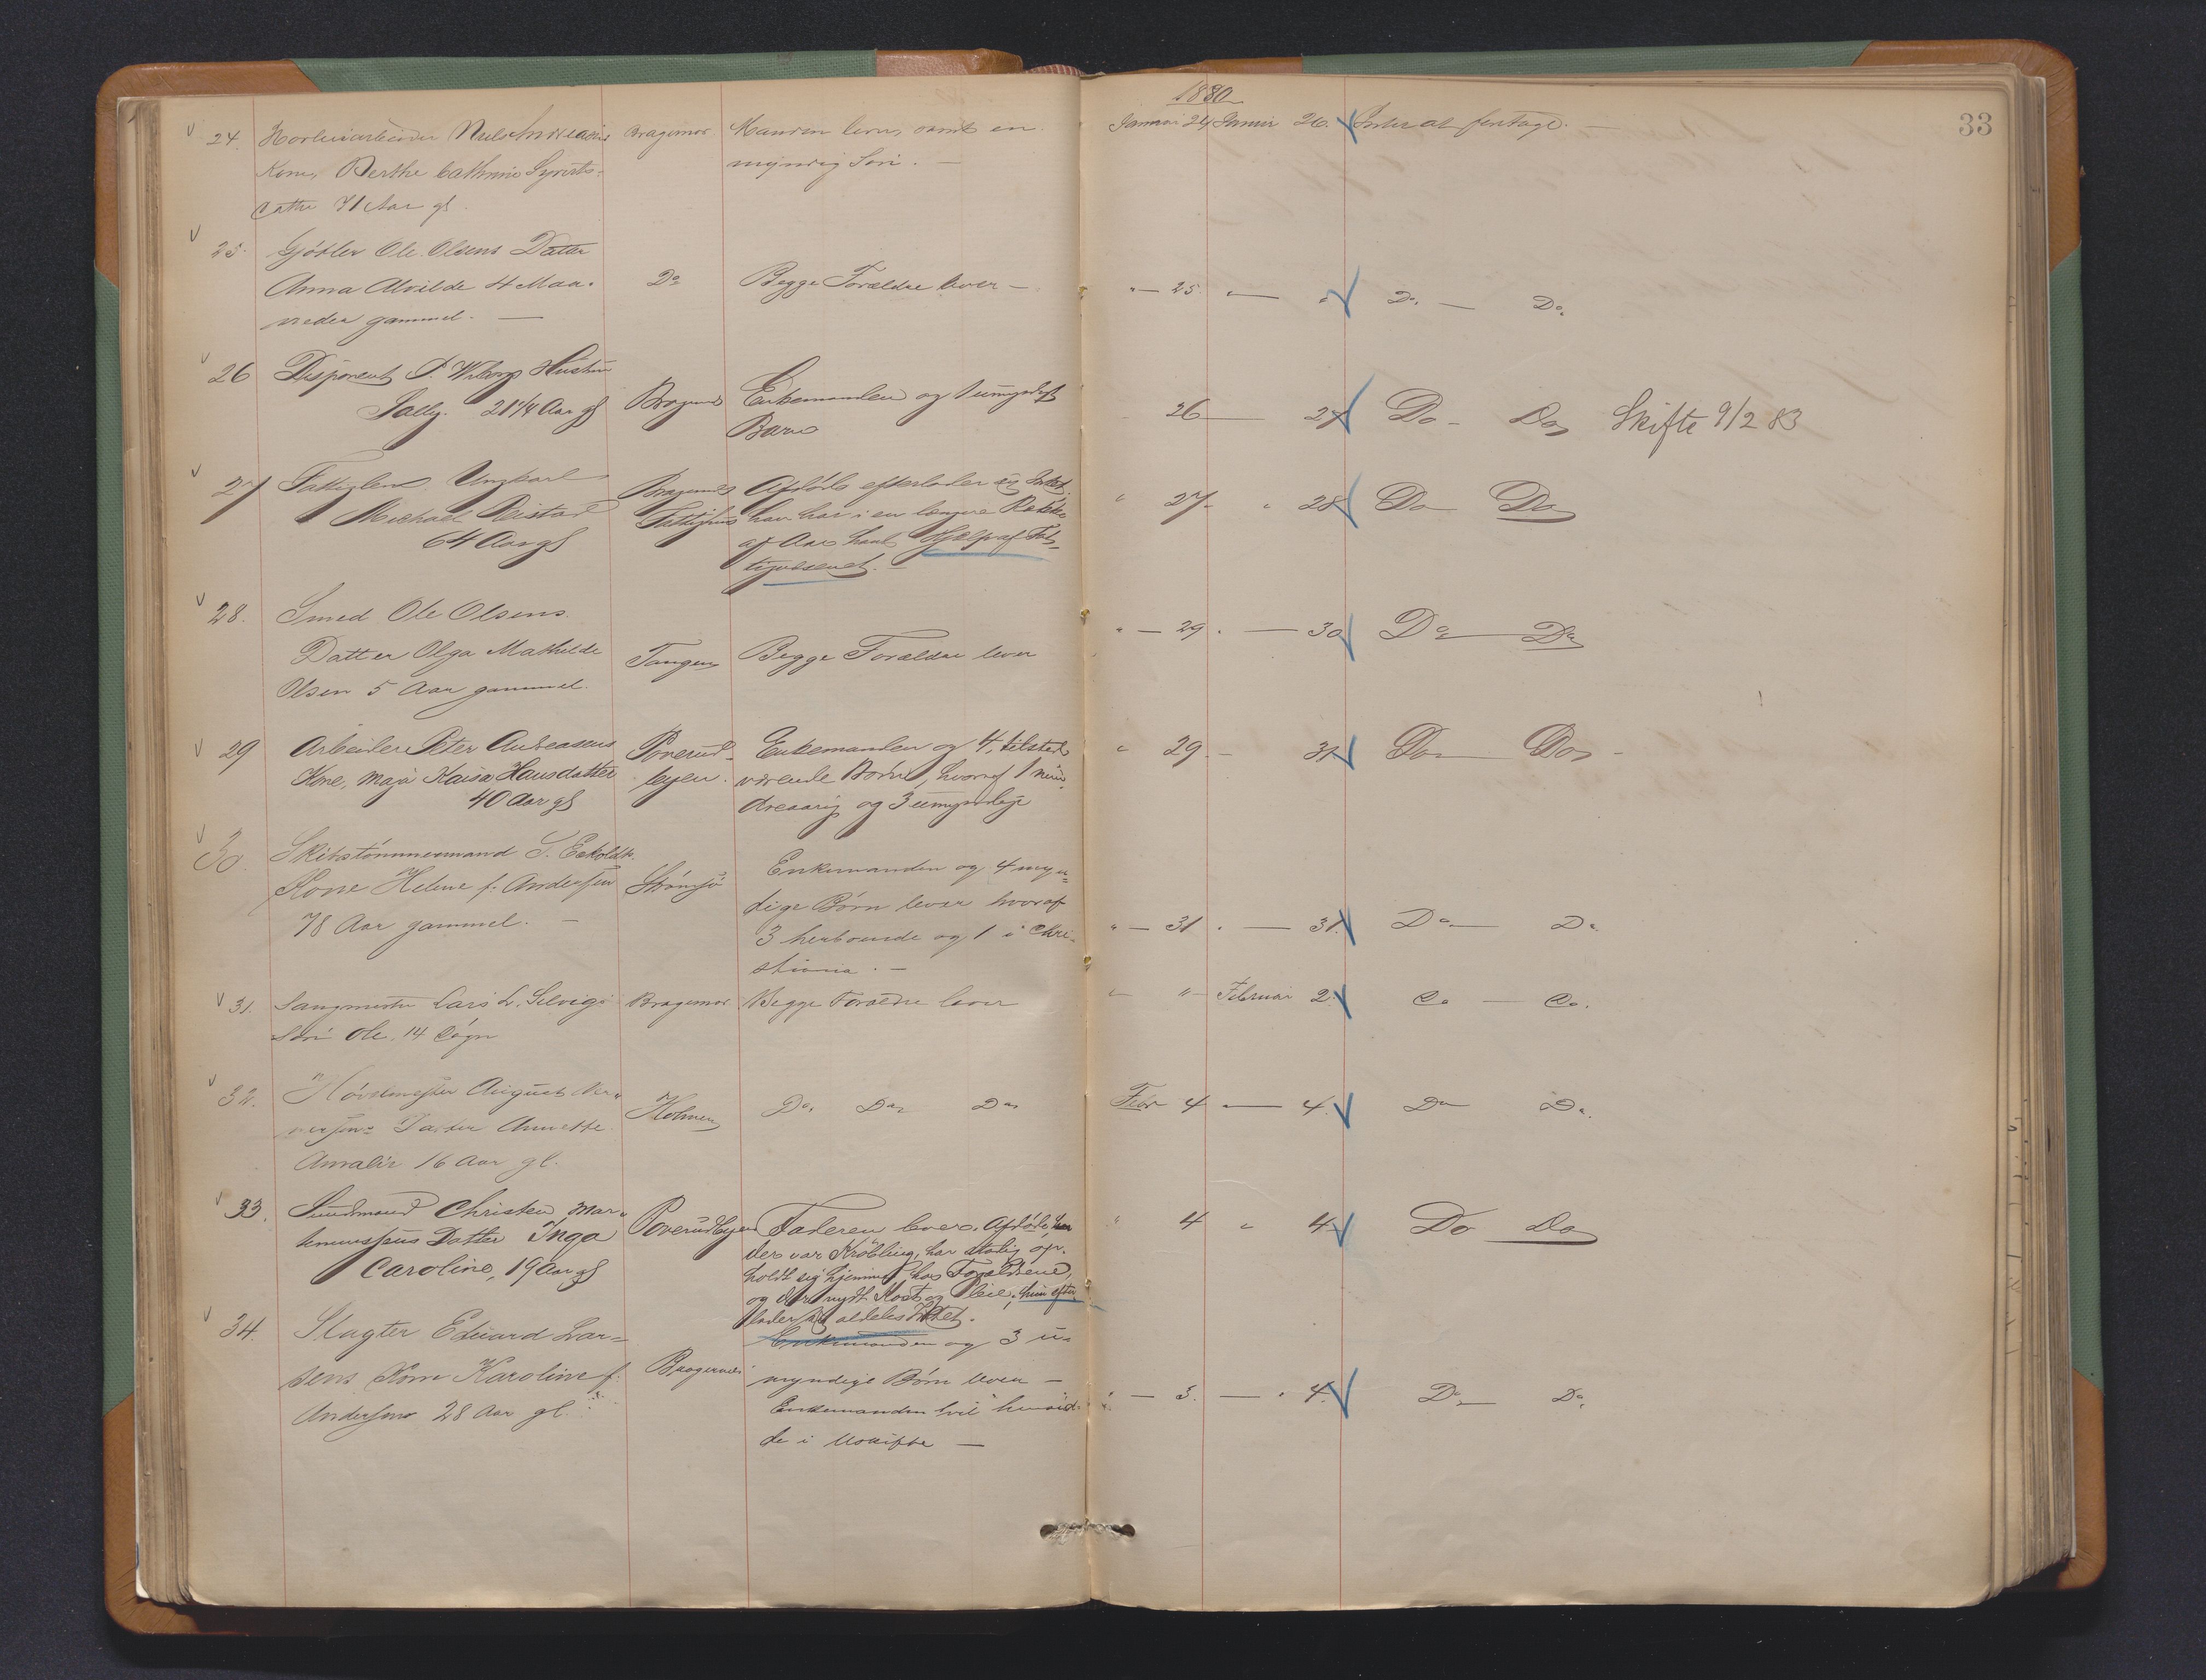 1880
33
24. Niels Andreasens Bragernes Manden lever, samt en Januar 24 Januar 26. Intet at foretage. —
Kone, Berthe Cathrine Syverts- myndig Søn. —
datter 71 Aar gl.
25. Gjørtler Ole Olsens Datter
Anna Alvilde 4 Maa- Do Begge Forældre lever — " — 25. " — " Do. — Do.
neder gammel. —
26 Disponent P. Wiborgs Hustru
Sally. 21 1/4 Aar gl Bragernes Enkemanden og 1 umyndigt 26 — 27 Do — Do Skifte 9/2 83
Barn
27 Fattiglem, Ungkarl Bragernes Afdøde efterlader sig Intet, " 27 — " 28 Do Do
Michael Reistad Fattighus han har i en længere Række
64 Aar gl af Aar havt Hjælp af Fat-
tigvæsenet. —
28. Smed Ole Olsens
Datter Olga Mathilde Tangen Begge Forældre lever " — 29 . — 30 Do — Do
Olsen 5 Aar gammel.
29 Arbeider Peter Andreasens Poverud- Enkemanden og 4, tilstede " 29 — 31 Do — Do —
Kone, Maja Kaisa Hansdatter byen. værende Børn, hvoraf 1 min-
40 Aar gl dreaarig og 3 umyndige
30. Skibstømmermand S. Eckoldts
Kone Helene f. Andersen Strømsø Enkemanden og 4 myn-
78 Aar gammel. — dige Børn lever hvoraf
3 herboende og 1 i Chri- " — 31 . — 31. Do — Do.
stiania. —
31. Saugmester Lars L. Solvigs Bragernes Begge Forældre lever " " — Februar 2. Do — Do.
Søn Ole. 14 Døgn
32. August
Datter Annette Holmen Do. Do. Do. Febr 4 — 4. Do Do.
Amalie 16 Aar gl.
33. Sundmand Christen Mar- Poverudbyen Faderen lever. Afdøde, " 4 " 4 Do Do
kmussens Datter Inga der var Krøbling, har stadig op-
Caroline, 19 Aar gl holdt sig hjemme hos Forældrene,
og der nydt Kost og Pleie, hun efter-
lader sig aldeles Intet.
34. Slagter Eduard Lar- Enkemanden og 3 u-
sens Kone Karoline f. Bragernes myndige Børn lever — " — 3. — " 4. Do — Do.
Andersen 28 Aar gl. Enkemanden vil hensid-
de i Uskifte —